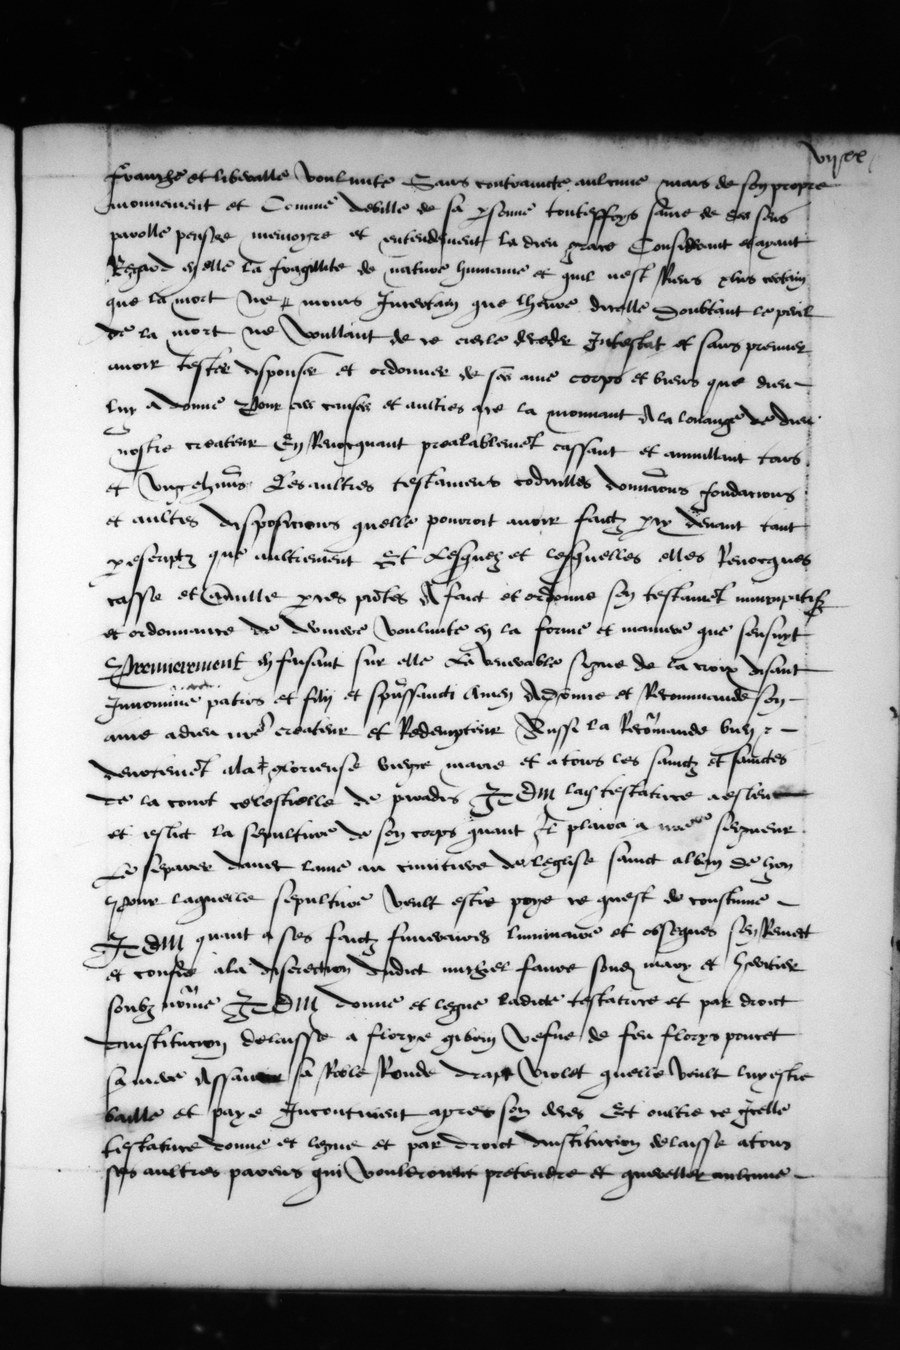 vij xx
franche et liberalle voulunte Sans contraincte aulcune mais de son propre
mouvement et Comme debille de sa psonne touteffoys saine de ses sens
parolle pensee memoyre et entendement la dieu grace Considerant et ayant
Regard en elle la fragillite de nature humaine et quil nest Riens plus certain
que la mort ne moins Incertain que lheure dicelle doubtant le peril
de la mort ne voullant de ce siecle deceder Intestat et sans premier
avoir teste disposer et ordonner de ses ame corps et biens que dieu
luy a donne Pour ces causes et aultres ace la mouvant A la louange de dieu
nostre createur En Revocquant prealablemet cassant et annullant tous
et ungchuns Ses aultres testamens codicilles donnaons fondacions
et aultres disposicions quelle pourroit avoir faictz par devant tant
p escriptz que aultrement Et Lesquez et lesquelles elles Revocques
casse et adnulle p ces pntes A faict et ordonne son testamet nuncupatif
et ordonnance de derniere voulunte en la forme et maniere que sensuyt
Premierement en faisant sur elle Le venerable signe de la croix disant
Innomine patris et filij et spussancti Amen A donne et Recommande son
ame a dieu nre createur et Redempteur Aussi la Recomande bien
devotemet ala glorieuse vierge marie et a tous les sainctz et sainctes
de la court celestielle de paradis ITEM lad testatrice a esleu
et eslict la sepulture de son corps quant Il plaira a nre seigneur
Le separer davec lame au cimitiere de leglise sainct alban de lyon
Pour laquelle sepulture veult estre paye ce quest de coustume
ITEM quant a ses faictz funeraires luminaire et obseques sen Remect
et confie ala discretion dudict faure sond mary et heritier
soubz nome ITEM donne et legue ladicte testatrice et par droict
dinstitucion delaisse a florye vefue de feu florys poncet
sa mere sa Robe Ronde drapt violet quelle veult luy estre
baille et paye Incontinent apres son deces Et oultre ce Icelle
testatrice donne et legue et par droict dinstitucion delaisse a tous
ses aultres parens qui vouldroient pretendre et quereller aulcune